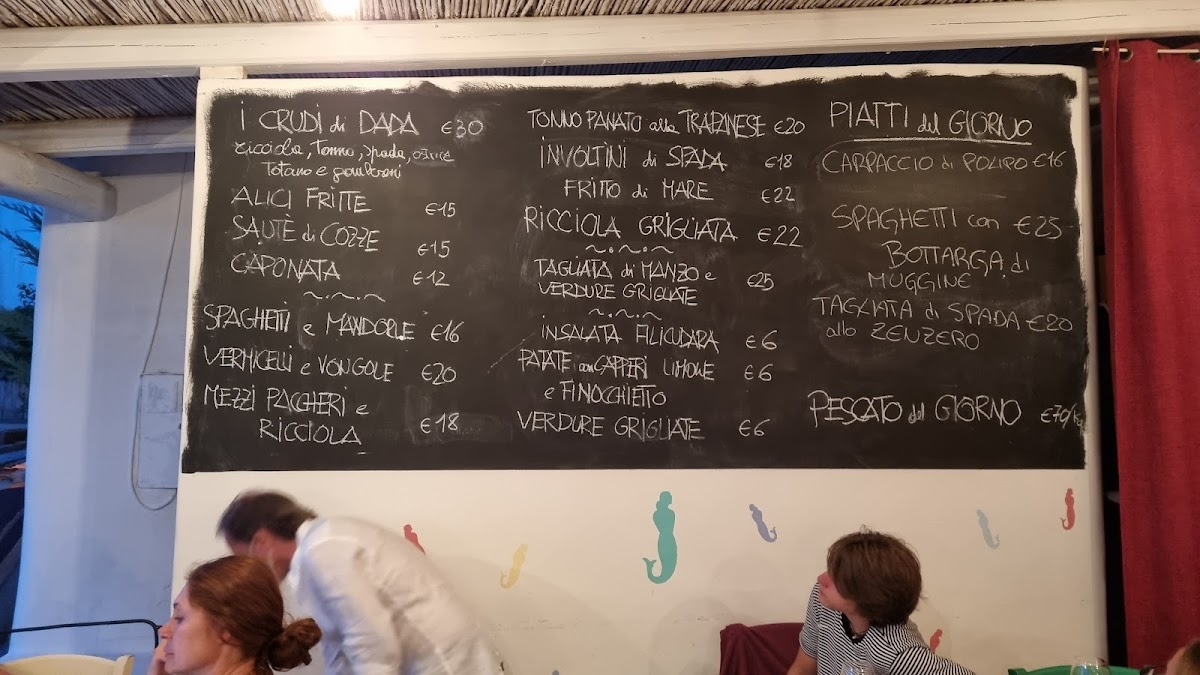 I CRUDI di DADA €30
ricciola, tonno, spada, ostrica
totano e gamberoni
ALICI FRITTE €15
SAUTÈ di COZZE €15
CAPONATA €12
SPAGHETTI e MANDORLE €16
VERMICELLI e VONGOLE €20
MEZZI PACCHERI e
RICCIOLA €18
TONNO PANATO alla TRAPANESE €20
INVOLTINI di SPADA €18
FRITTO di MARE €22
RICCIOLA GRIGLIATA €22
TAGLIATA di MANZO e
VERDURE GRIGLIATE €25
INSALATA FILICUDARA €6
PATATE con CAPPERI LIMONE €6
e FINOCCHIETTO
VERDURE GRIGLIATE €6
PIATTI del GIORNO
CARPACCIO di POLIPO €16
SPAGHETTI con €25
BOTTARGA di
MUGGINE
TAGLIATA di SPADA €20
allo ZENZERO
PESCATO del GIORNO €70/kg